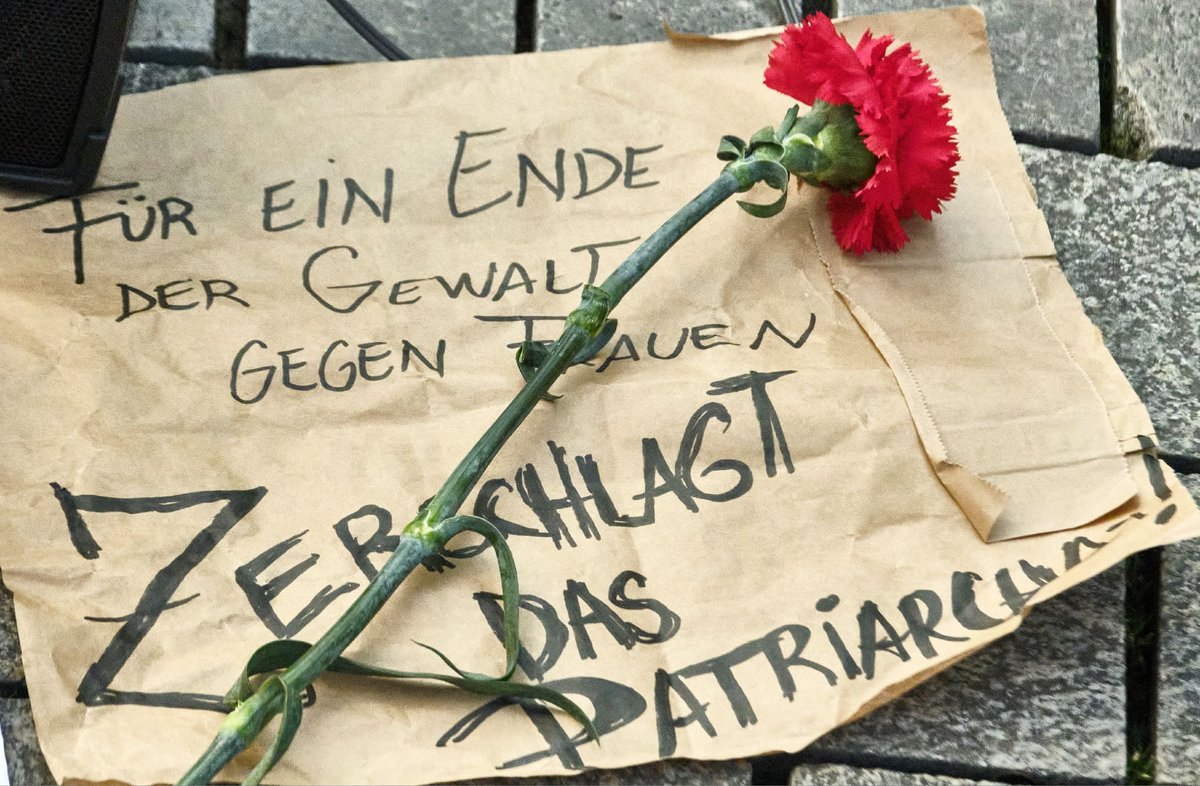 FÜR EIN ENDE
DER GEWALT
GEGEN FRAUEN
ZERSCHLAGT
DAS
PATRIARCHAT!